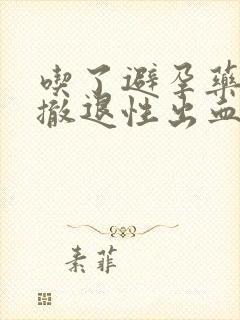 喫了避孕藥
撤退性出血
素菲